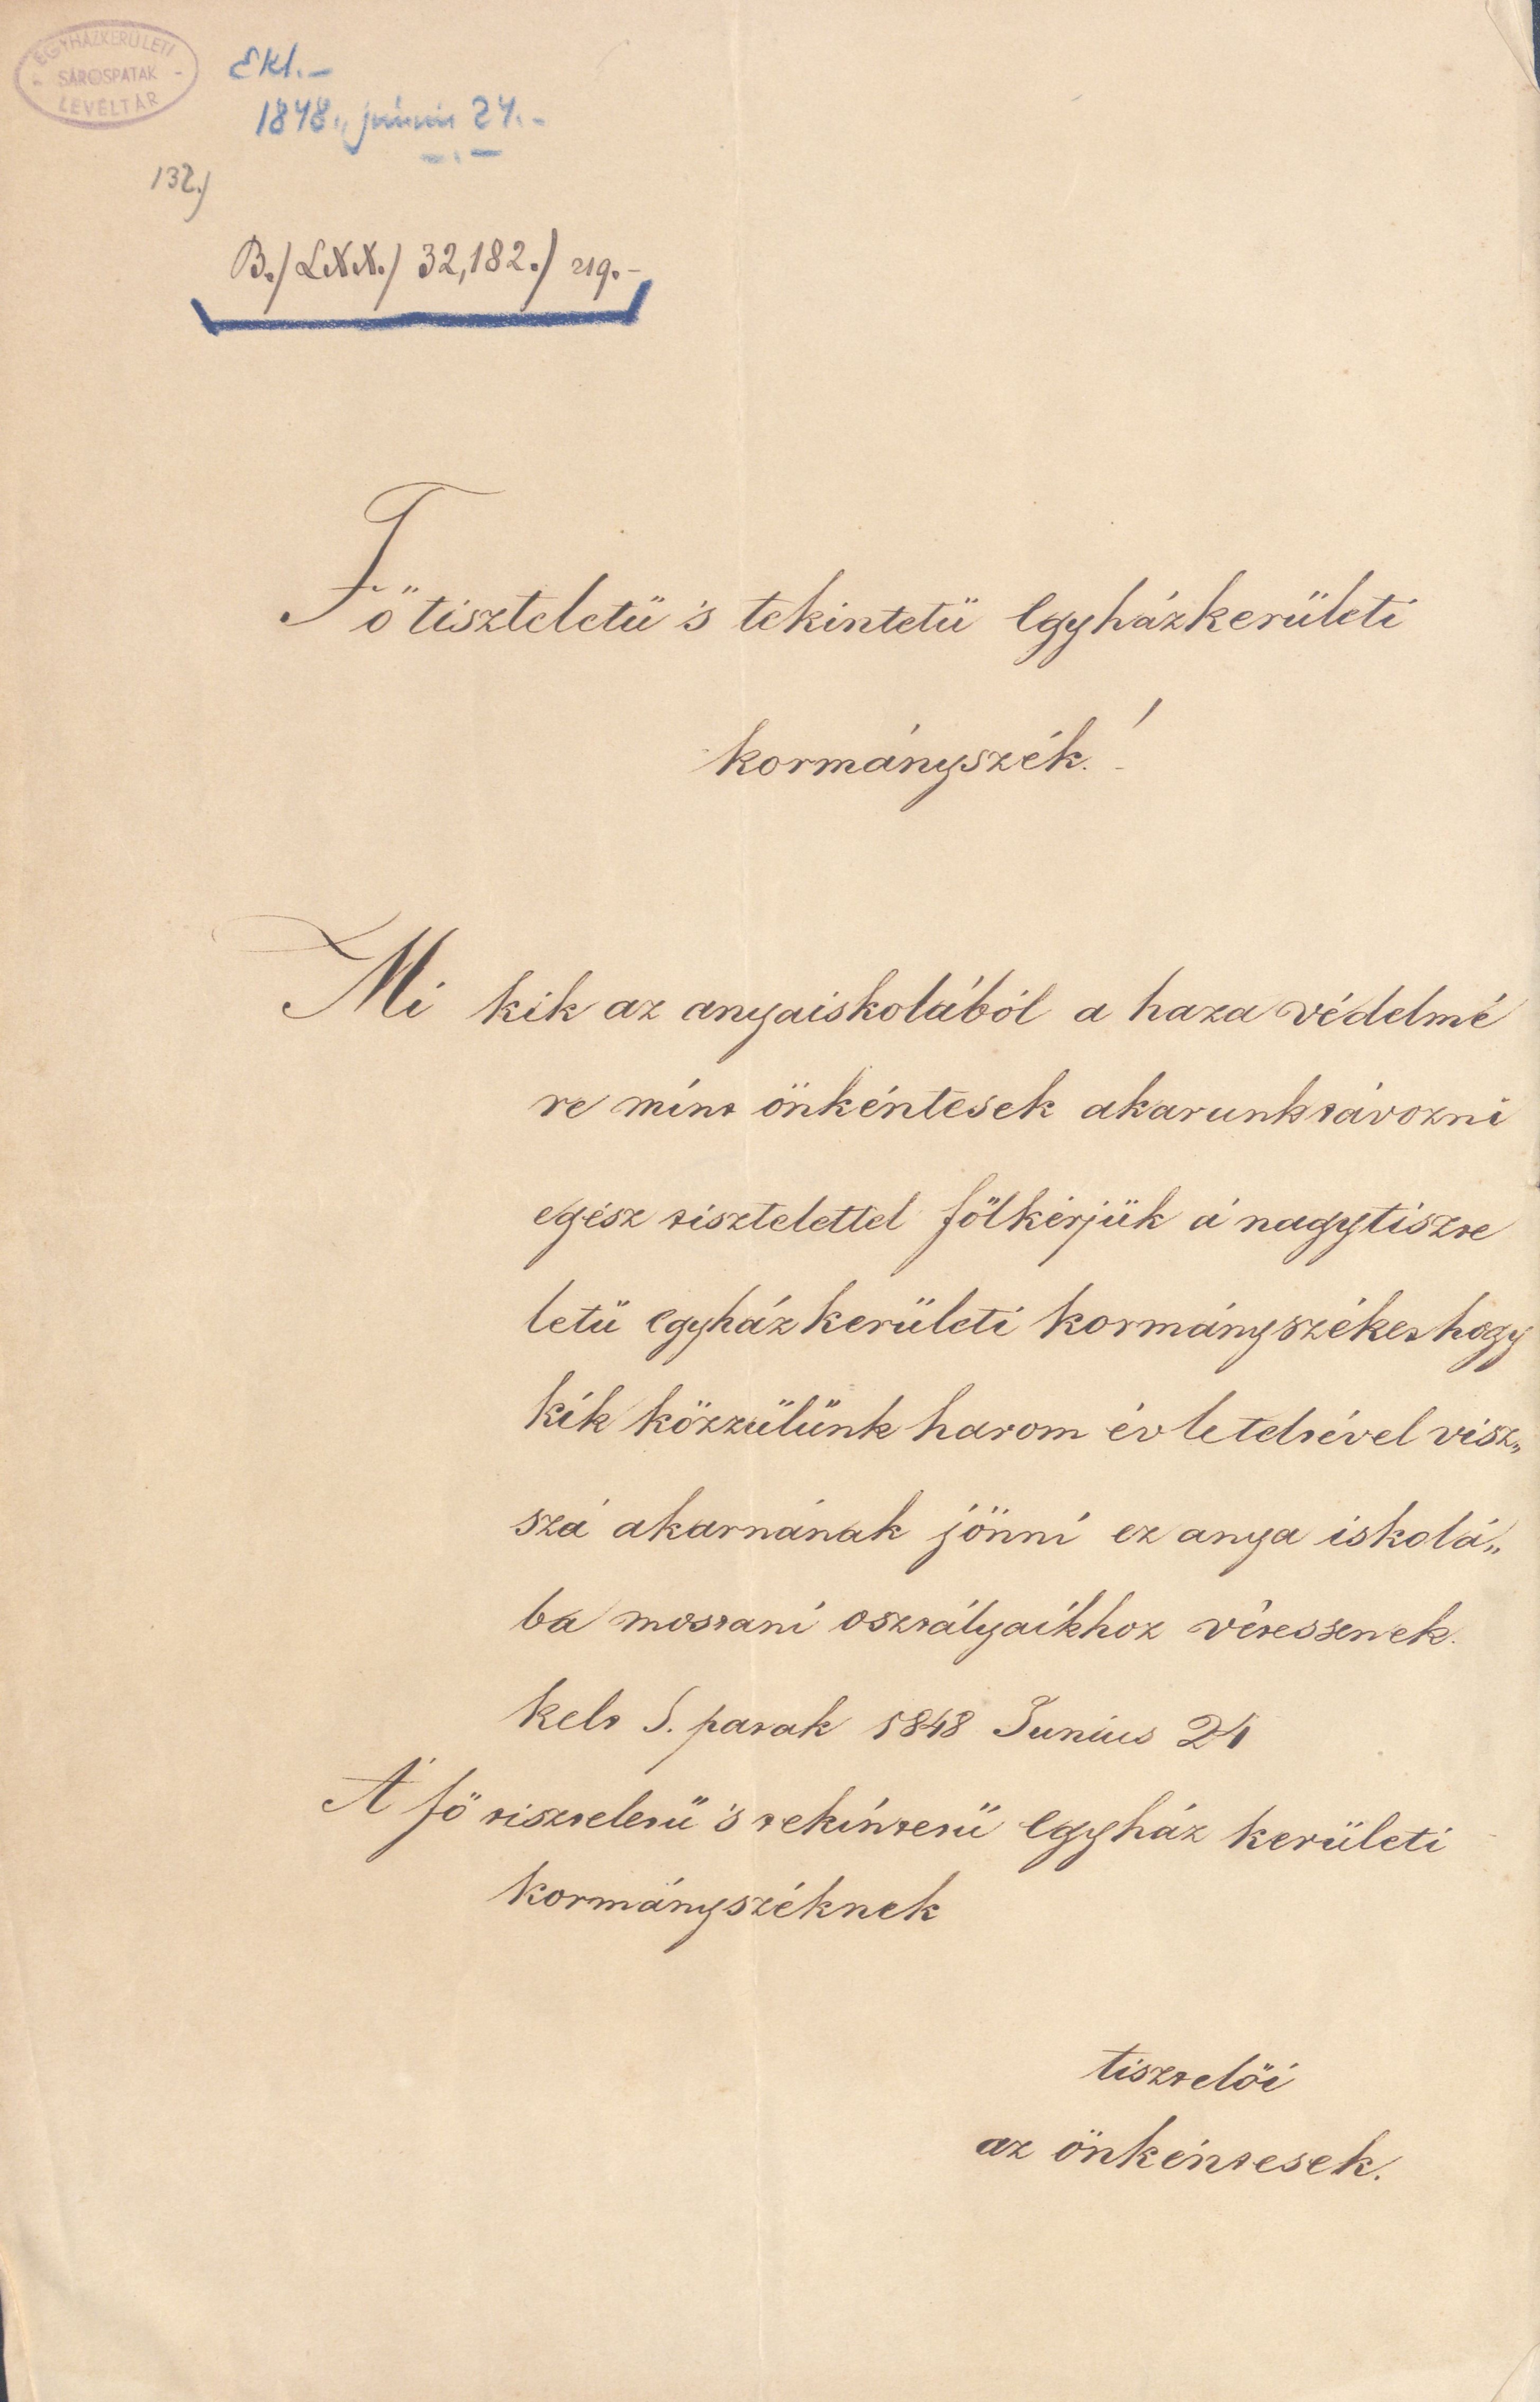 EGYHÁZKERÜLETI
- SÁROSPATAK -
LEVÉLTÁR
Ekl.-
1848., június 24.-
132./
B./LXX./ 32,182./ 219.-
Főtiszteletü 's tekintetü Egyházkerületi
kormányszék!
Mi kik az anyaiskolából a haza védelmé
re mint önkéntesek akarunk távozni
egész tisztelettel fölkérjük a' nagytiszte
letü egyházkerületi kormányszéket hogy
kik közzülünk harom év leteltével visz„
szá akarnának jönni ez anya iskolá„
ba mostani osztályaikhoz vétessenek.
kelt S. patak 1848 Junius 24
A' fő tiszteletü 's tekintetü Egyház kerületi
kormányszéknek
tisztelői
az önkéntesek.